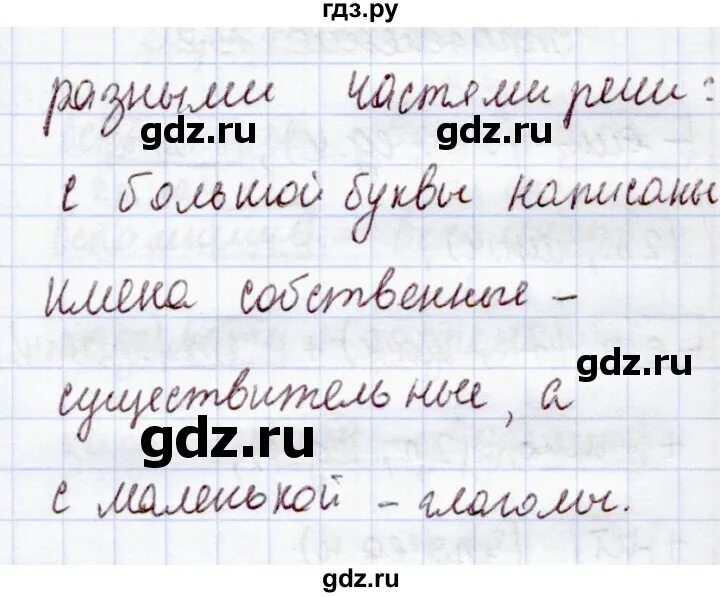 гдз.ру
разными частями речи:
gdz.ru gdz.ru
с большой буквы написаны
имена собственные -
gdz.ru
существительные, а
gdz.ru
с маленькой - глаголы.
gdz.ru